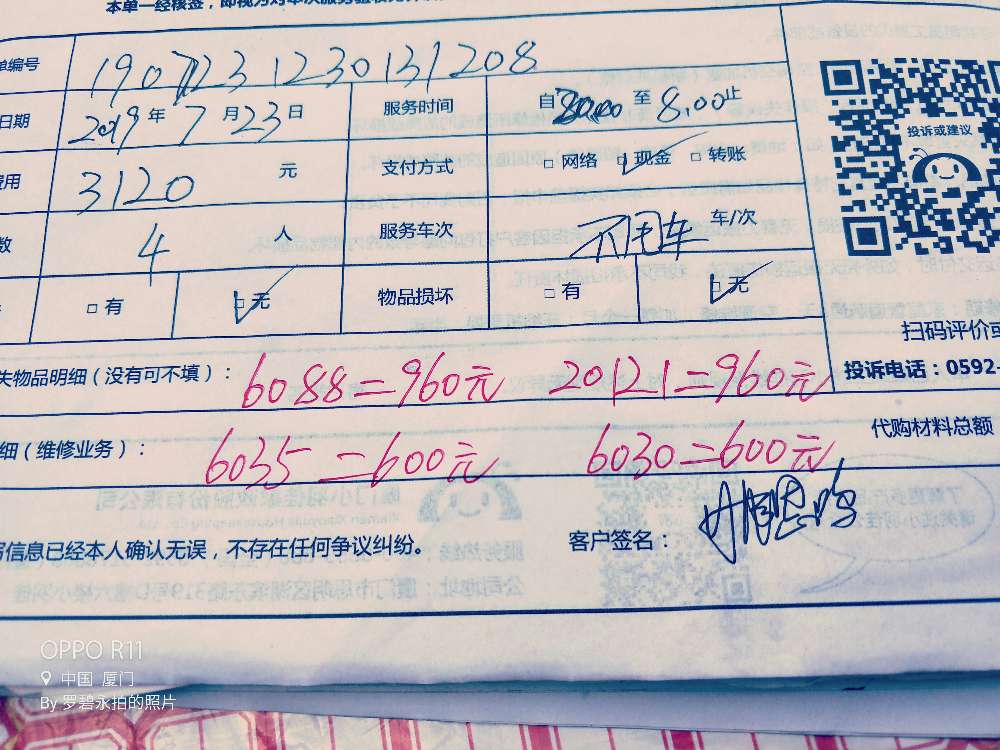 本单一经核签，即视为对本次服务
单编号 190723 1230131208
日期 2019年 7月23日 服务时间 自 至 8.00止
费用 3120 元 支付方式 □ 网络 □ 现金 □ 转账
数 4 人 服务车次 不用车 车/次
□ 有 □ 无 物品损坏 □ 有 □ 无
投诉或建议
扫码评价或
投诉电话：0592-
失物品明细（没有可不填）： 6088=960元 20121=960元
细（维修业务）： 6035=600元 6030=600元
代购材料总额
写信息已经本人确认无误，不存在任何争议纠纷。 客户签名：
OPPO R11
中国 厦门
By 罗碧永拍的照片